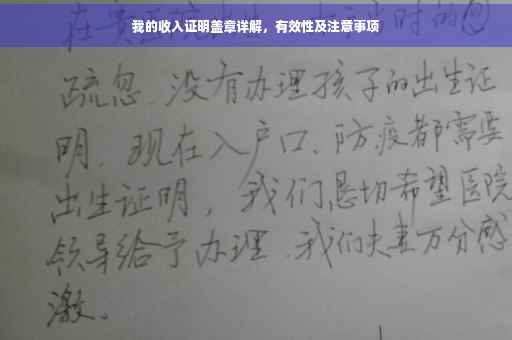 我的收入证明盖章详解，有效性及注意事项
时的
疏忽、没有办理孩子的出生证
明、现在入户口、防疫都需要
出生证明，我们恳切希望医院
领导给予办理、我们夫妻万分感
激。